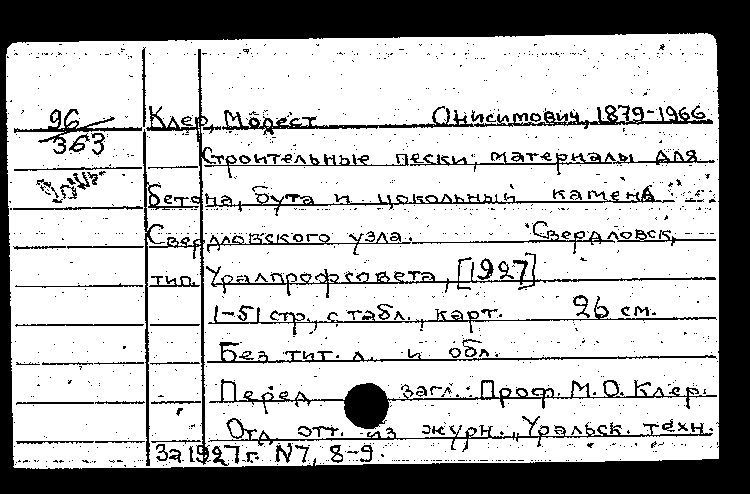 96
363
Клер, Модест Онисимович, 1879-1966
Строительные пески; материалы для
бетона, бута и цокольный камень
Свердловского узла. Свердловск,
тип. Уралпрофсовета, [1927]
1-51 стр., с табл., карт. 26 см.
Без тит. л. и обл.
Перед загл.: Проф. М.О. Клер.
Отд. отт. из журн. „Уральск. техн.
за 1927 г. N7, 8-9.